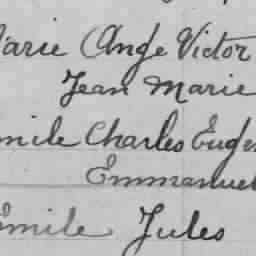 Marie Ange Victor
Jean Marie
Emile Charles Eugè
Emmanuel
Emile Jules